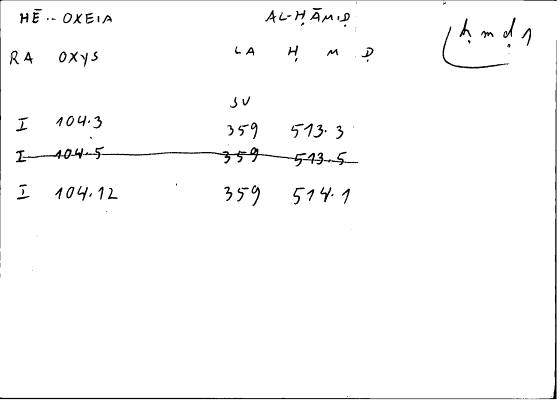 HĒ -- OXEIA AL-ḤĀMIḌ
ḥmḍ1
RA OXYS LA Ḥ M Ḍ
SU
I 104.3 359 513.3
I 104.5 359 513.5
I 104.12 359 514.1